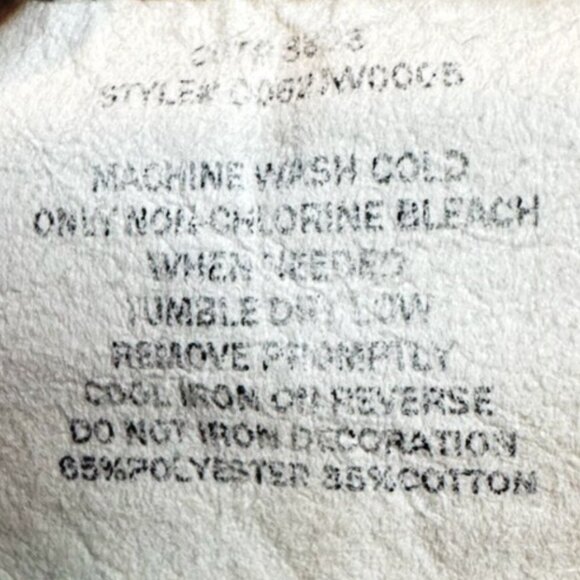 STYLE#
MACHINE WASH COLD
ONLY NON-CHLORINE BLEACH
WHEN NEEDED
TUMBLE DRY LOW
REMOVE PROMPTLY
COOL IRON ON REVERSE
DO NOT IRON DECORATION
65%POLYESTER 35%COTTON